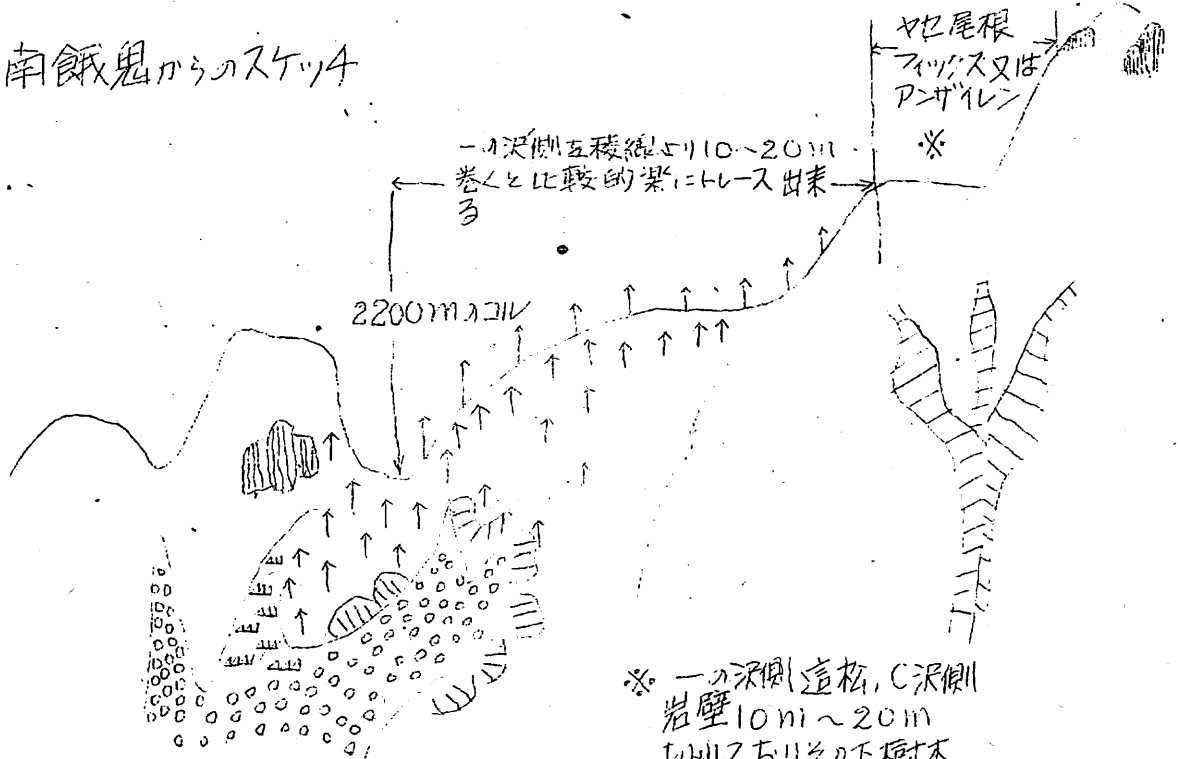 南餓鬼からのスケッチ
ヤセ尾根
フィックス又は
アンザイレン
※
一の沢側を稜線より10〜20m
巻くと比較的楽にトレース出来
る
2200mのコル
※ 一の沢側這松、C沢側
岩壁10m〜20m
ておりその下樹木